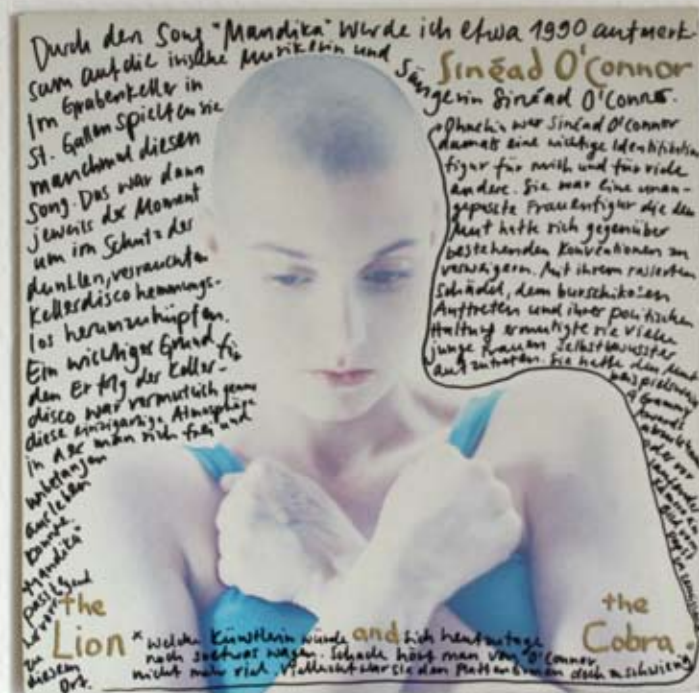 Durch den Song "Mandika" wurde ich etwa 1990 aufmerk-
sam auf die irische Musikerin und
Sängerin Sinéad O'Connor.
Im Grabenkeller in
St. Gallen spielten sie
manchmal diesen
Song. Das war dann
jeweils der Moment
um im Schutz der
dunklen, verrauchten
Kellerdisco hemmungs-
los herumzuhüpfen.
Ein wichtiger Grund für
den Erfolg der Keller-
disco war vermutlich genau
diese einzigartige Atmosphäre
in der man sich frei und
unbefangen
ausleben
konnte.
"Mandika"
passt
zu
diesem
Ort.
Sinéad O'Connor
Ohnehin war Sinéad O'Connor
damals eine wichtige Identifikation
figur für mich und für viele
andere. Sie war eine unan-
gepasste Frauenfigur die den
Mut hatte sich gegenüber
bestehenden Konventionen zu
verweigern. Mit ihrem rasierten
Schädel, dem burschikosen
Auftreten und ihrer politischen
Haltung ermutigte sie viele
junge Frauen selbstbewusster
aufzutreten. Sie hatte den Mut
beispielsweise
Grammy
oder vor
the Lion and the Cobra
* welche Künstlerin würde sich heutzutage
noch sowas wagen. Schade hört man von O'Connor
nicht mehr viel. Vielleicht war sie den Plattenfirmen doch zu schwierig